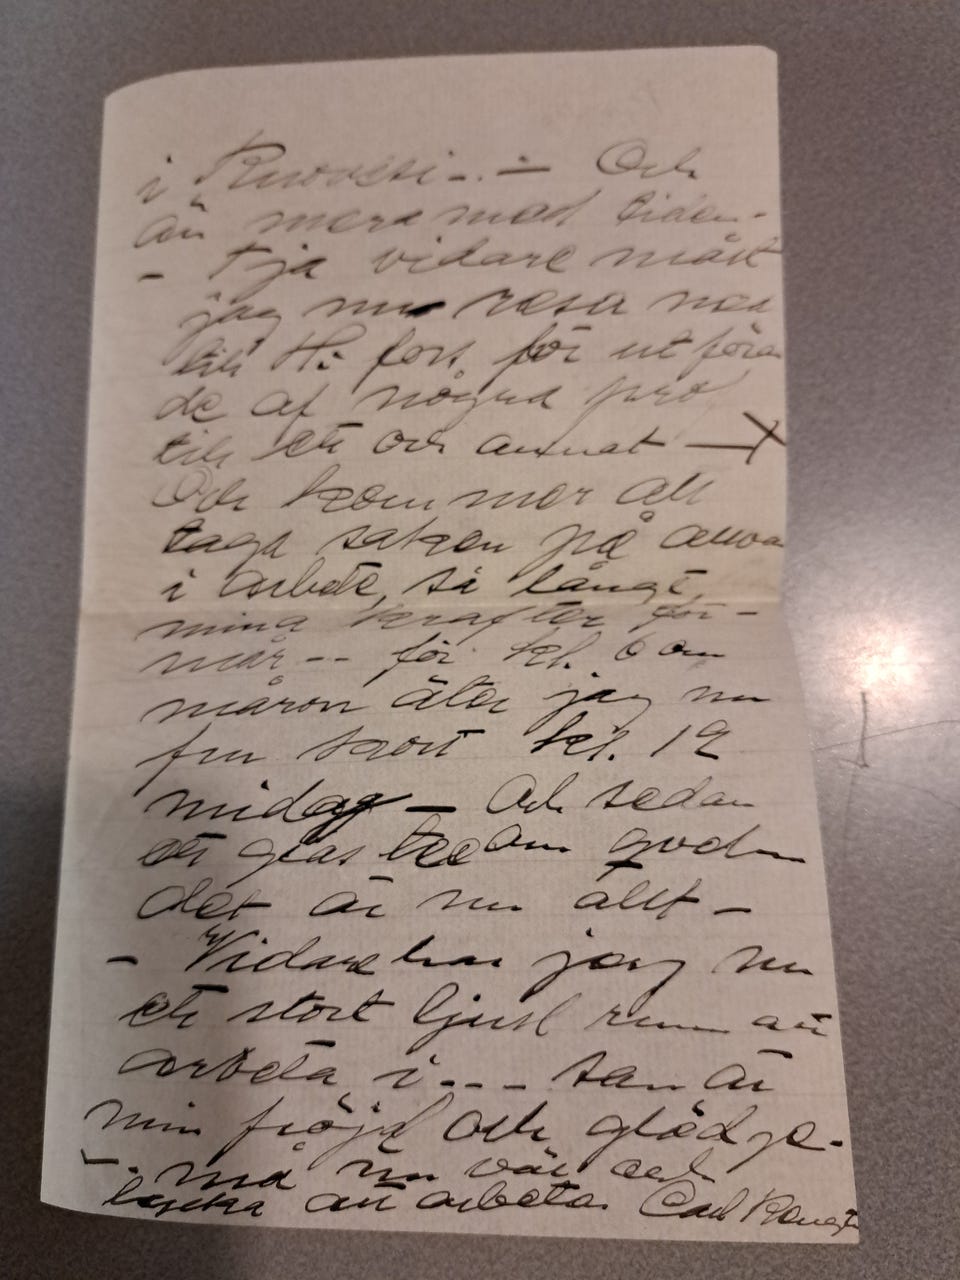 i Ruovesi -.- Och
än mera med tiden.
- Tja vidare måst
jag nu resa ned
till H:fors, för utföran
de af några prof
till ett och annat —
Och kommer att
taga saken på allva
i arbete, så långt
mina krafter för-
mår -- för kl. 6 om
måron äter jag nu
fru kost kl. 12
midag — Och sedan
ett glas tee om qvelln
det är nu allt -
- Vidare har jag nu
ett stort ljust rum att
arbeta i --- Som är
min fröjd och glädje.
må nu väl och
lycka att arbeta. Carl